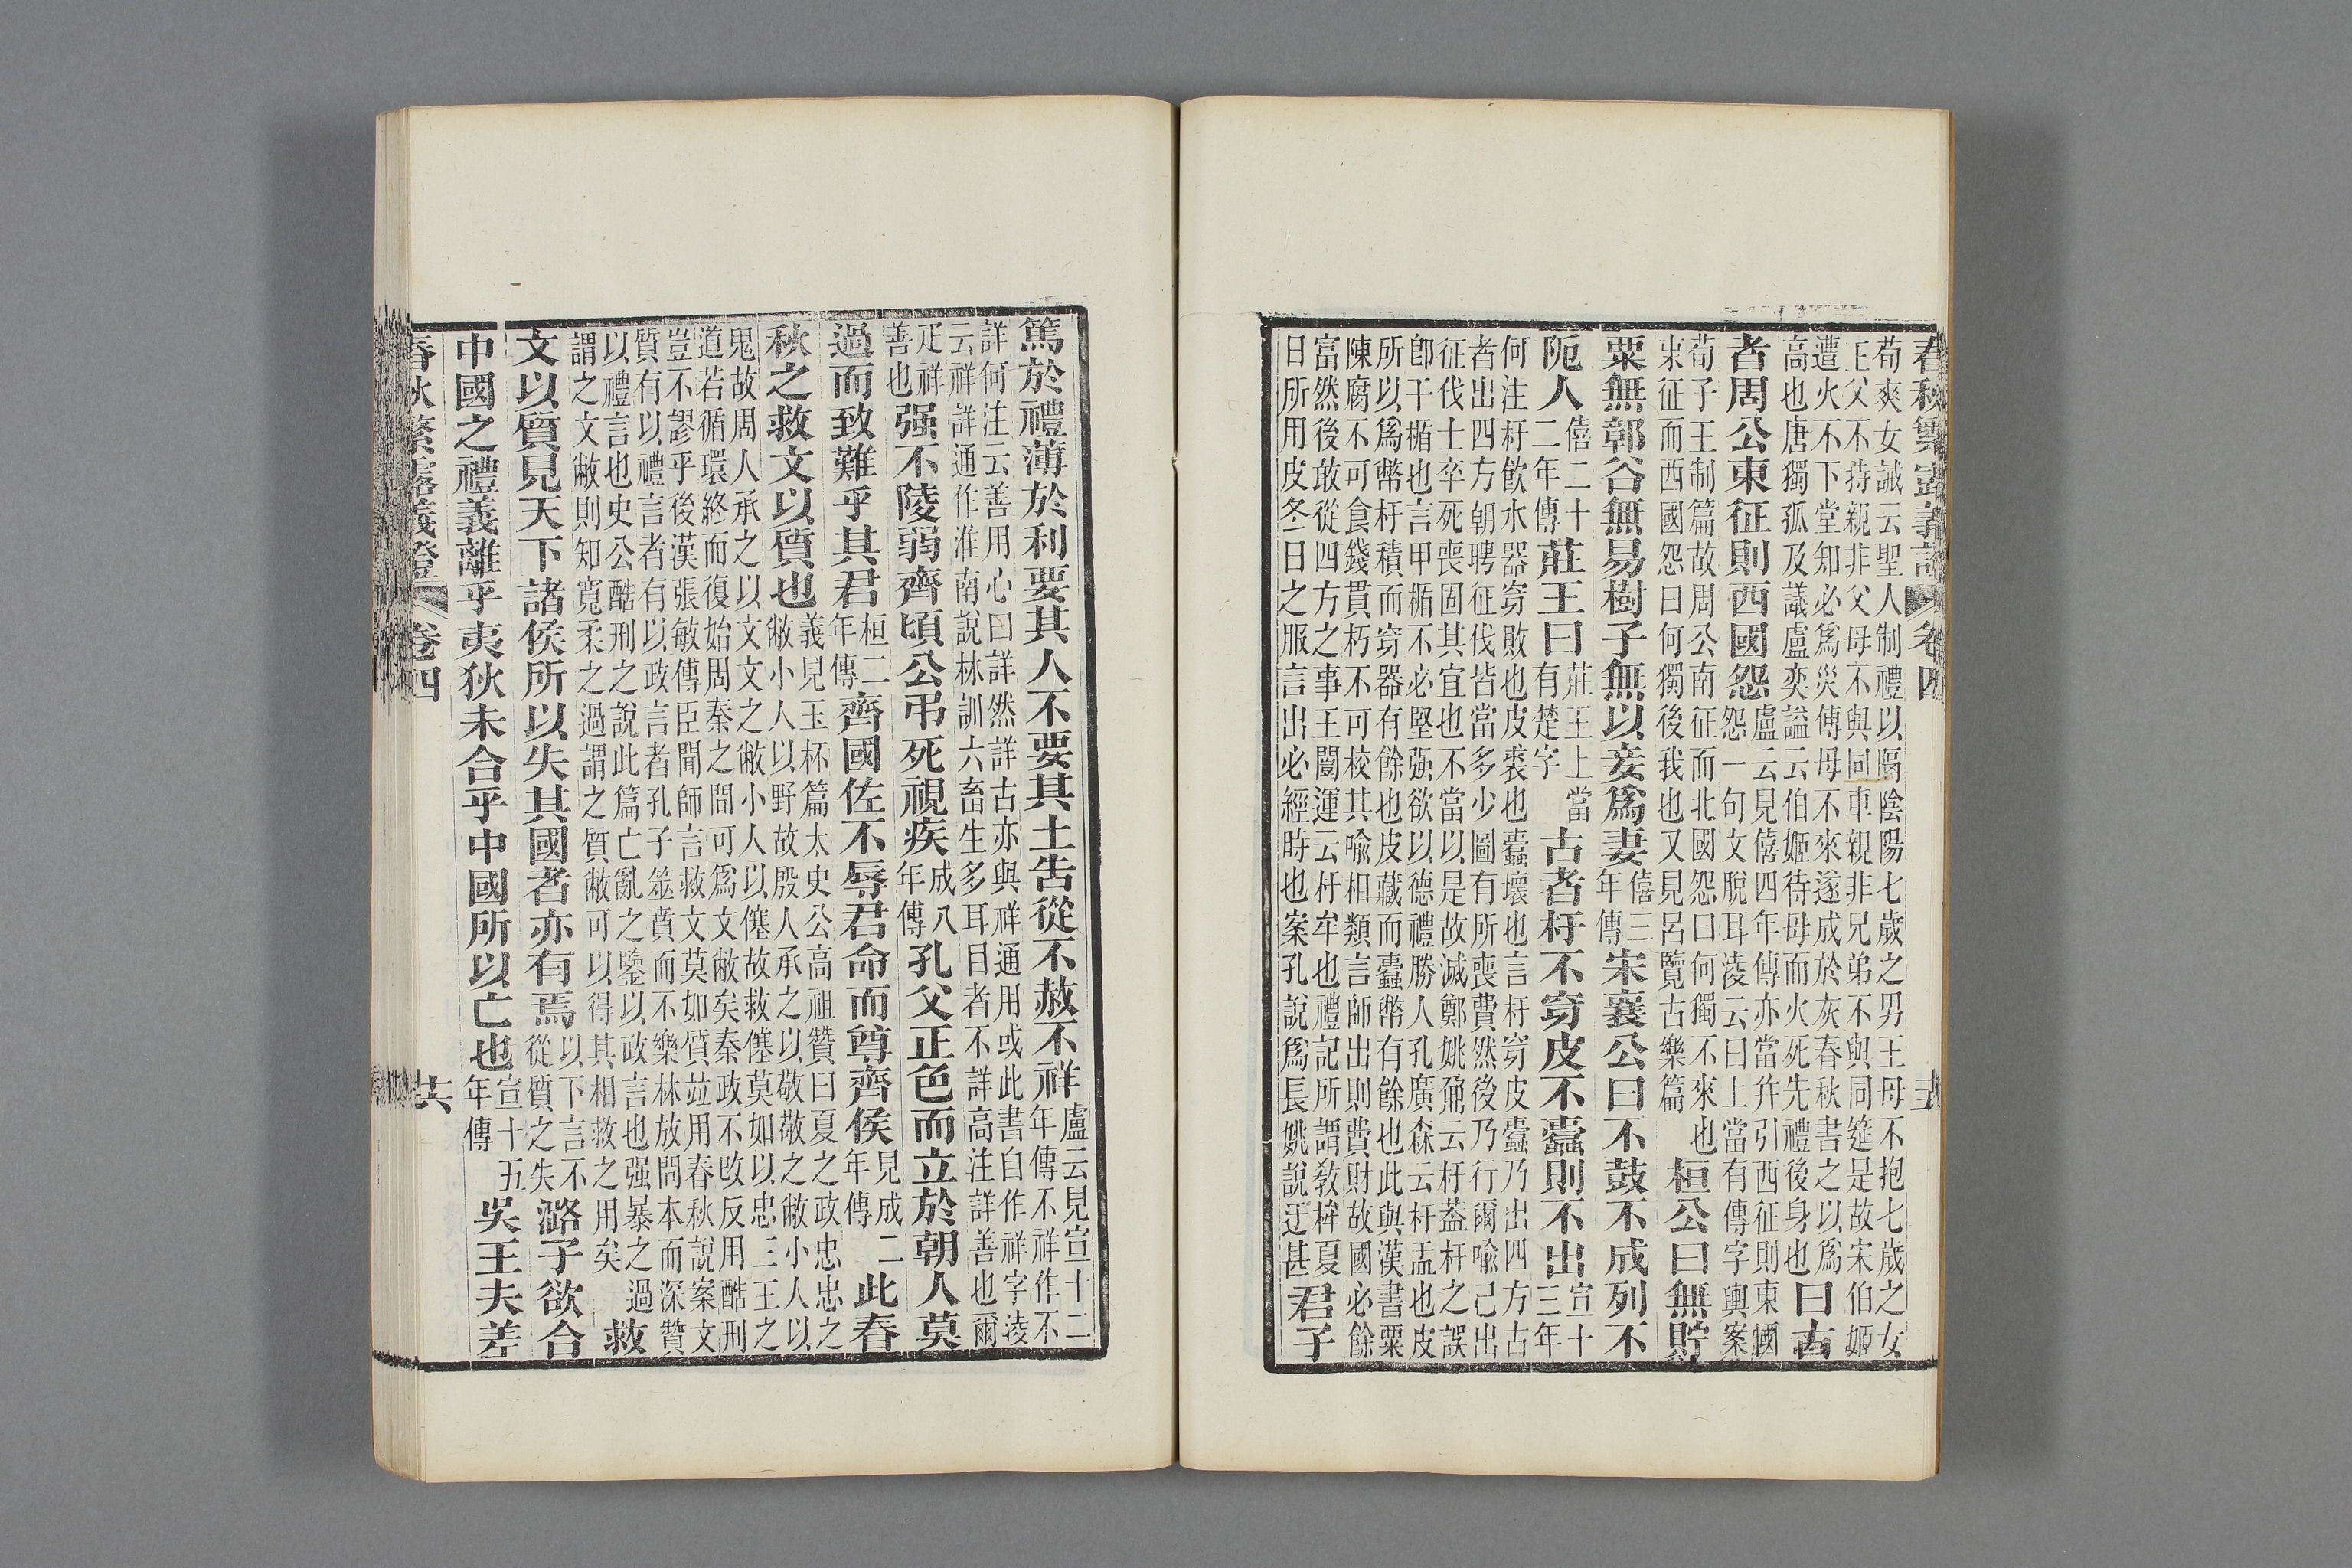 春秋繁露義證 卷四
荀爽女誡云聖人制禮以隔陰陽七歲之男王母不抱七歲之女
王父不持親非父母不與同車親非兄弟不與同筵是故宋伯姬
遭火不下堂知必爲災傅母不來遂成於灰春秋書之以爲
高也唐獨孤及議盧奕諡云伯姬待母而火死先禮後身也
曰古
者周公東征則西國怨
盧云見僖四年傳亦當幷引西征則東國
怨一句文脫耳淩云曰上當有傳字輿案
荀子王制篇故周公南征而北國怨曰何獨不來也
東征而西國怨曰何獨後我也又見呂覽古樂篇
桓公曰無貯
粟無鄣谷無易樹子無以妾爲妻
僖三
年傳
宋襄公曰不鼓不成列不
阨人
僖二十
二年傳
莊王曰
莊王上當
有楚字
古者杅不穿皮不蠹則不出
宣十
三年
何注杅飮水器穿敗也皮裘也蠹壞也言杅穿皮蠹乃出四方古
者出四方朝聘征伐皆當多少圖有所喪費然後乃行爾喻己出
征伐士卒死喪固其宜也不當以是故滅鄭姚鼐云杅蓋杆之誤
卽干楯也言甲楯不必堅强欲以德禮勝人孔廣森云杅盂也皮
所以爲幣杅積而穿器有餘也皮藏而蠹幣有餘也此與漢書粟
陳腐不可食錢貫朽不可校其喻相類言師出則費財故國必餘
富然後敢從四方之事王闓運云杅牟也禮記所謂敎桙夏
日所用皮冬日之服言出必經時也案孔說爲長姚說迂甚
君子
篤於禮薄於利要其人不要其土告從不赦不祥
盧云見宣十二
年傳不祥作不
詳何注云善用心曰詳然詳古亦與祥通用或此書自作祥字淩
云祥詳通作淮南說林訓六畜生多耳目者不詳高注詳善也爾
疋祥
善也
强不陵弱齊頃公弔死視疾
成八
年傳
孔父正色而立於朝人莫
過而致難乎其君
桓二
年傳
齊國佐不辱君命而尊齊侯
見成二
年傳
此春
秋之救文以質也
義見玉杯篇太史公高祖贊曰夏之政忠忠之
敝小人以野故殷人承之以敬敬之敝小人以
鬼故周人承之以文文之敝小人以僿故救僿莫如以忠三王之
道若循環終而復始周秦之間可爲文敝矣秦政不改反用酷刑
豈不謬乎後漢張敏傳臣聞師言救文莫如質竝用春秋說案文
質有以禮言者有以政言者孔子筮賁而不樂林放問本而深贊
以禮言也史公酷刑之說此篇亡亂之鑒以政言也强暴之過
謂之文敝則知寬柔之過謂之質敝可以得其相救之用矣
救
文以質見天下諸侯所以失其國者亦有焉
以下言不
從質之失
潞子欲合
中國之禮義離乎夷狄未合乎中國所以亡也
宣十五
年傳
吳王夫差
春秋繁露義證 卷四 廿六